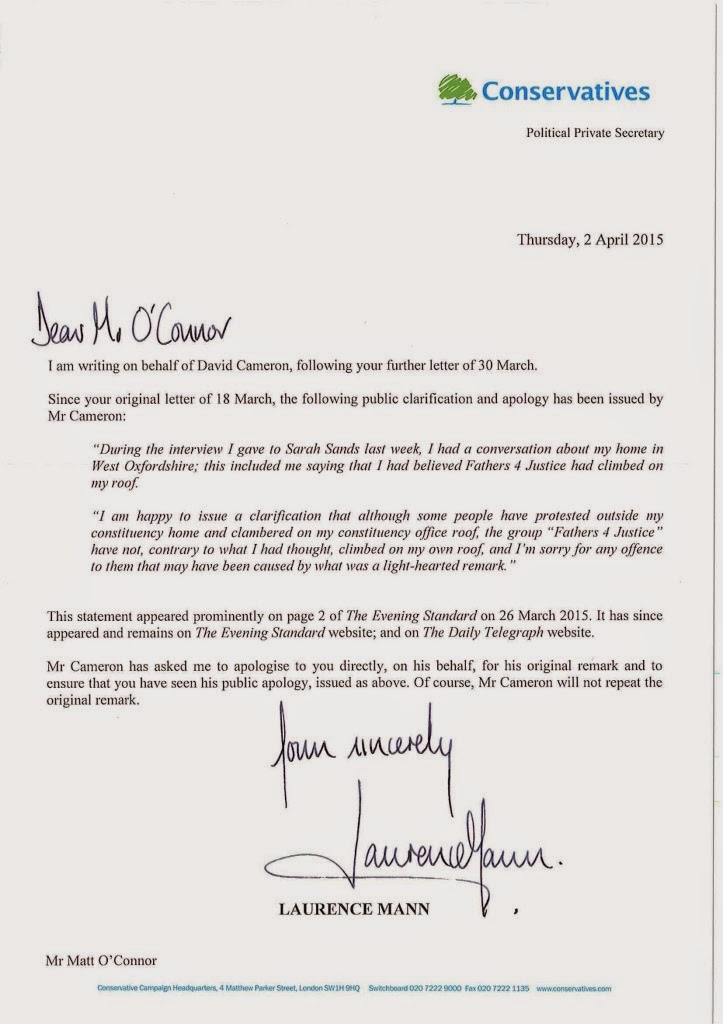 Conservatives
Political Private Secretary
Thursday, 2 April 2015
Dear Mr O'Connor
I am writing on behalf of David Cameron, following your further letter of 30 March.
Since your original letter of 18 March, the following public clarification and apology has been issued by
Mr Cameron:
"During the interview I gave to Sarah Sands last week, I had a conversation about my home in
West Oxfordshire; this included me saying that I had believed Fathers 4 Justice had climbed on
my roof.
"I am happy to issue a clarification that although some people have protested outside my
constituency home and clambered on my constituency office roof, the group "Fathers 4 Justice"
have not, contrary to what I had thought, climbed on my own roof, and I'm sorry for any offence
to them that may have been caused by what was a light-hearted remark."
This statement appeared prominently on page 2 of The Evening Standard on 26 March 2015. It has since
appeared and remains on The Evening Standard website; and on The Daily Telegraph website.
Mr Cameron has asked me to apologise to you directly, on his behalf, for his original remark and to
ensure that you have seen his public apology, issued as above. Of course, Mr Cameron will not repeat the
original remark.
Yours sincerely
Laurence Mann.
LAURENCE MANN
Mr Matt O'Connor
Conservative Campaign Headquarters, 4 Matthew Parker Street, London SW1H 9HQ Switchboard 020 7222 9000 Fax 020 7222 1135 www.conservatives.com